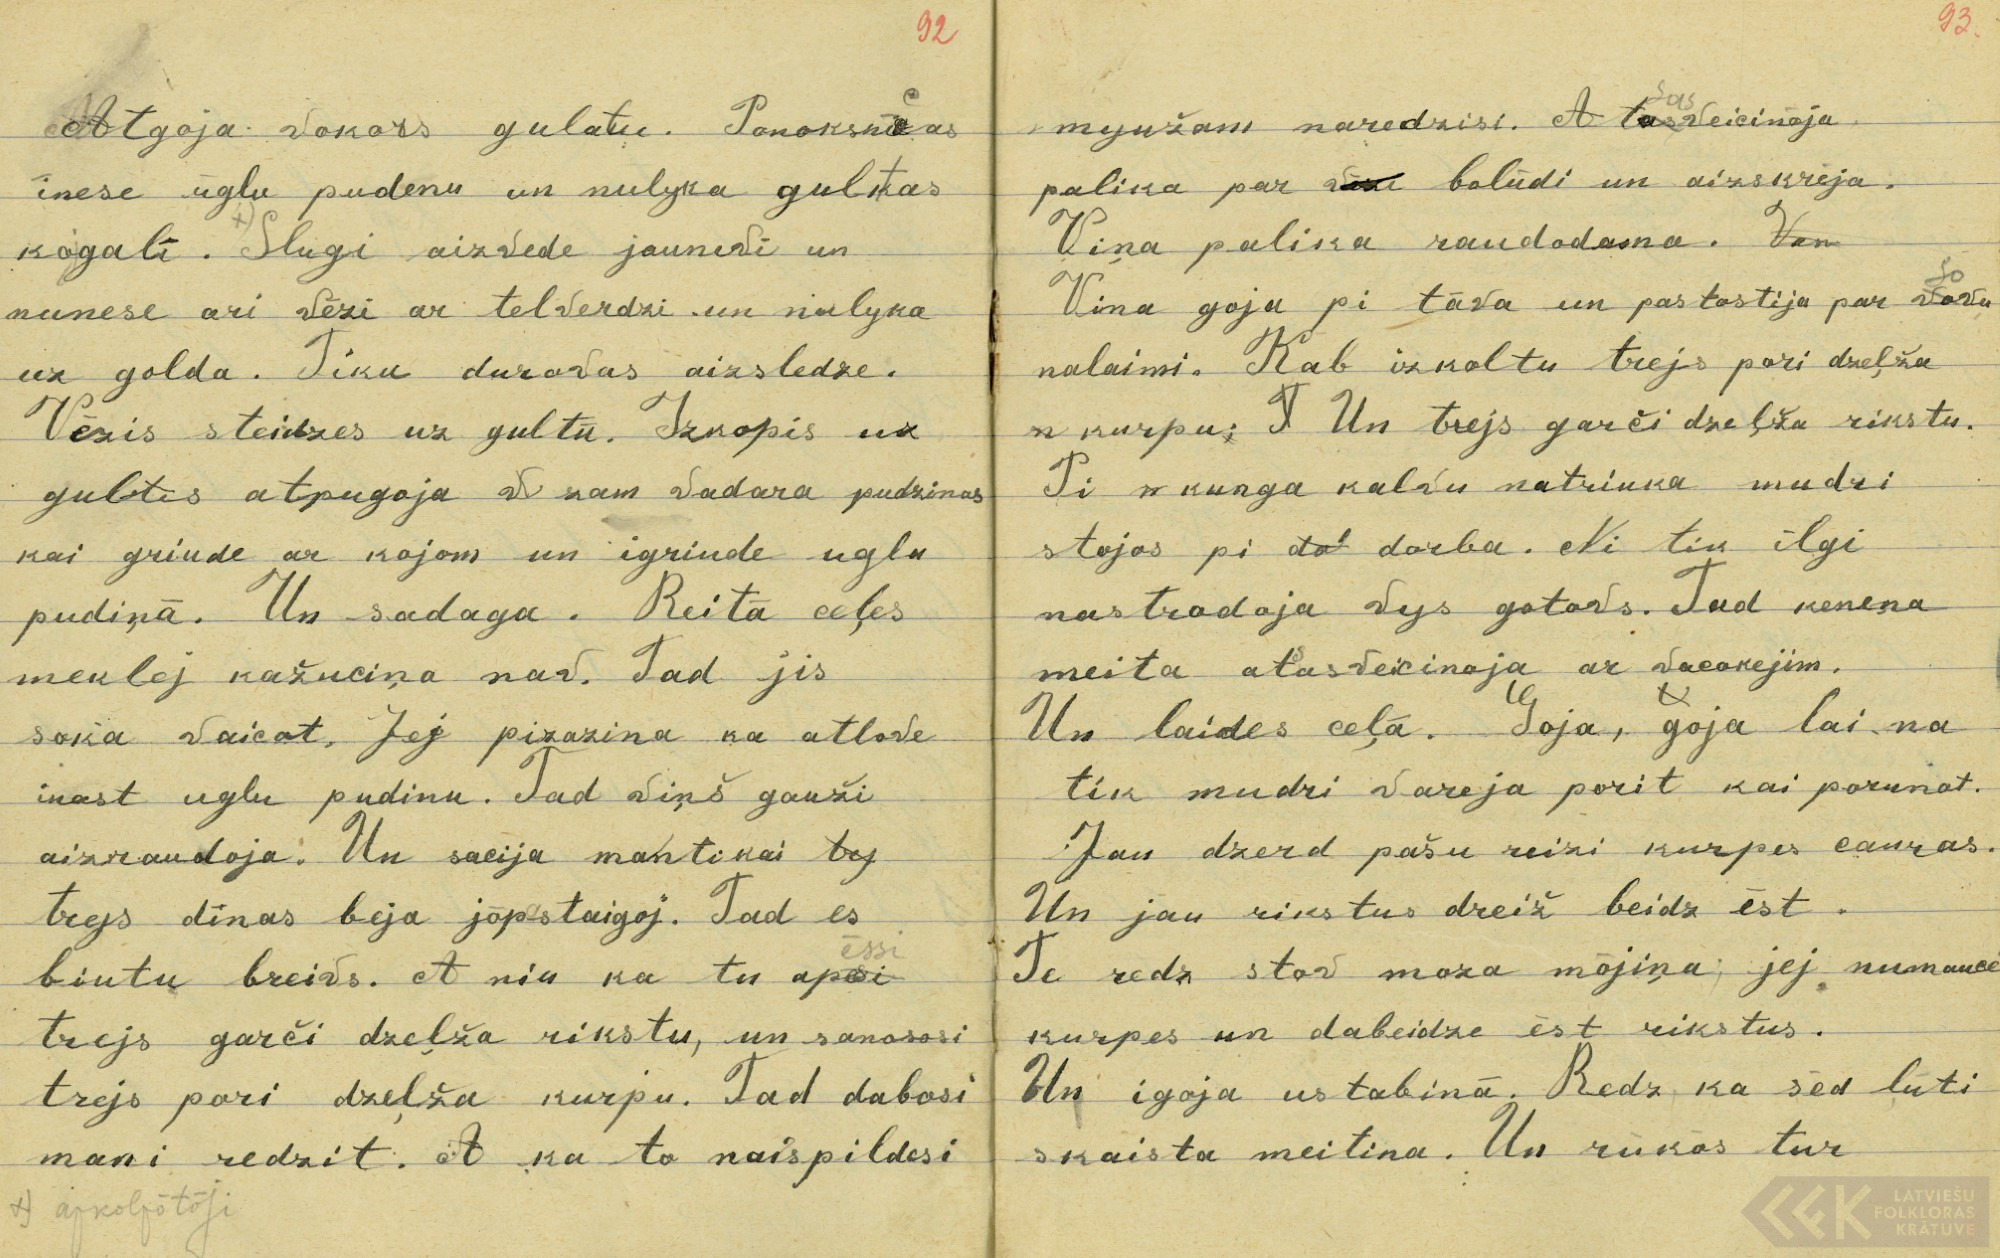 92
Atgoja vokors gulatu. Ponoksnēcas
īnese ūglu pudenu un nulyka gultas
kōgalī. x) Slugi aizvede jaunovi un
nunese ari vēzi ar telverdzi un nulyka
uz golda. Tiku durovas aizsledze.
Vēzis steidzes uz gultu. Izkopis uz
gultis atpugoja zam vadara pudzinas
kai griude ar kojom un īgriude uglu
pudiņā. Un sadaga. Reitā ceļes
meklej kažuciņa nav. Tad jis
soka vaicot. Jej pizazina ka atlove
īnast uglu pudinu. Tad viņš gauži
aizraudoja. Un sacija man tikai trej
trejs dīnas beja jōpastaigoj. Tad es
biutu breivs. A niu ka tu apēsi ēssi
trejs garči dzeļža rikstu, un sanososi
trejs pori dzeļža kurpu. Tad dabosi
mani redzit. A ka to naispildesi
x) apkolpōtōji
93.
myužam naredzisi. A tasveicinoja sas
palika par bolūdi un aizskrēja.
Viņa palika raudodama. Van
Viņa goja pi tāva un pastostija par vovu so
nalaimi. Kab izkoltu trejs pori dzeļža
kurpu; T Un trejs garči dzeļža rikstu.
Pi kunga kalvu natriuka mudri
stojos pi do dorba. Ni tik ilgi
nastrodoja vys gotovs. Tad kenena
meita atasveicinoja ar vacokejim.
Un laides ceļā. Goja, goja lai na
tik mudri vareja porit kai porunot.
Jau dzerd pašu reizi kurpes cauras.
Un jau rikstus dreiž beidz ēst.
Te redz stov moza mōjiņa jej numauce
kurpes un dabeidze ēst rikstus.
Un īgoja ustabinā. Redz ka sēd ļūti
skaista meitina. Un rūkos tur
LATVIEŠU
FOLKLORAS
KRĀTUVE